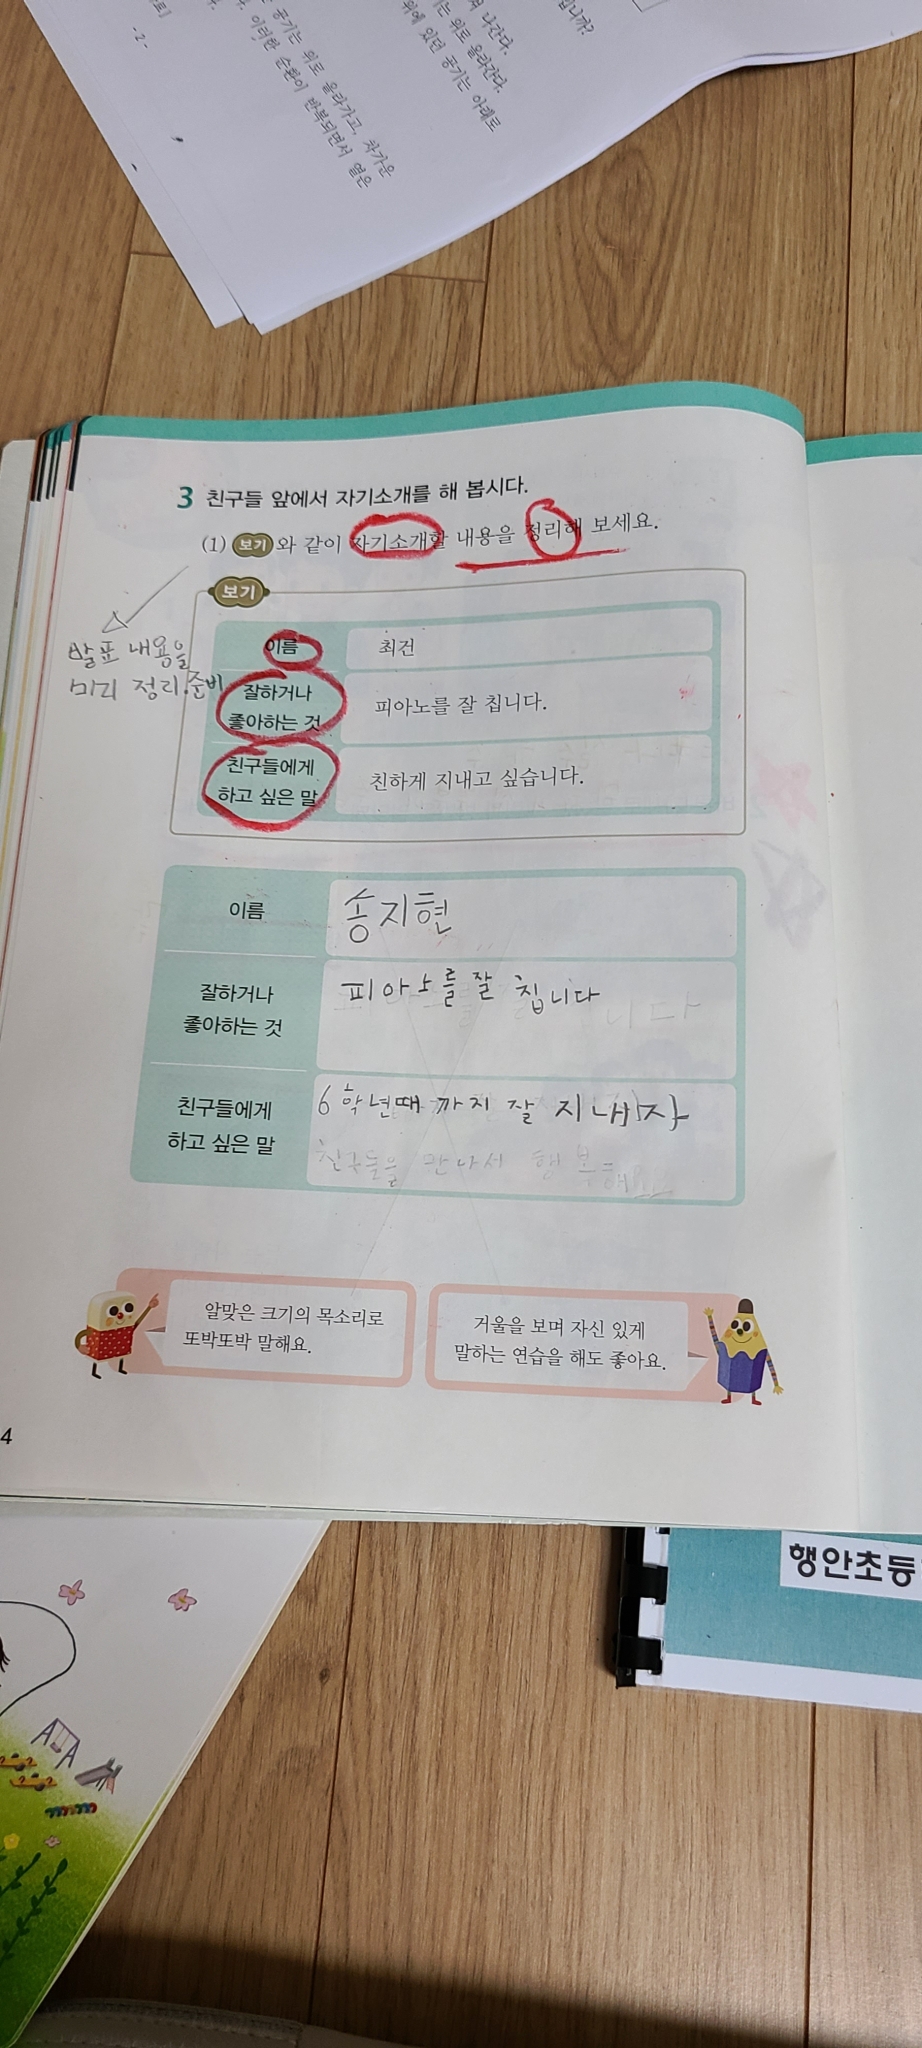 입니까?
나간다.
는 위로 올라간다.
위에 있던 공기는 아래로
공기는 위로 올라가고, 차가운
이러한 순환이 반복되면서 열은
- 2 -
3 친구들 앞에서 자기소개를 해 봅시다.
(1) 보기 와 같이 자기소개할 내용을 정리해 보세요.
발표 내용을
미리 정리.준비
보기
이름 최건
잘하거나
좋아하는 것
피아노를 잘 칩니다.
친구들에게
하고 싶은 말
친하게 지내고 싶습니다.
이름 송지현
잘하거나
좋아하는 것
피아노를 잘 칩니다
친구들에게
하고 싶은 말
6학년때 까지 잘 지내자
친구들을 만나서 행복해
알맞은 크기의 목소리로
또박또박 말해요.
거울을 보며 자신 있게
말하는 연습을 해도 좋아요.
4
행안초등